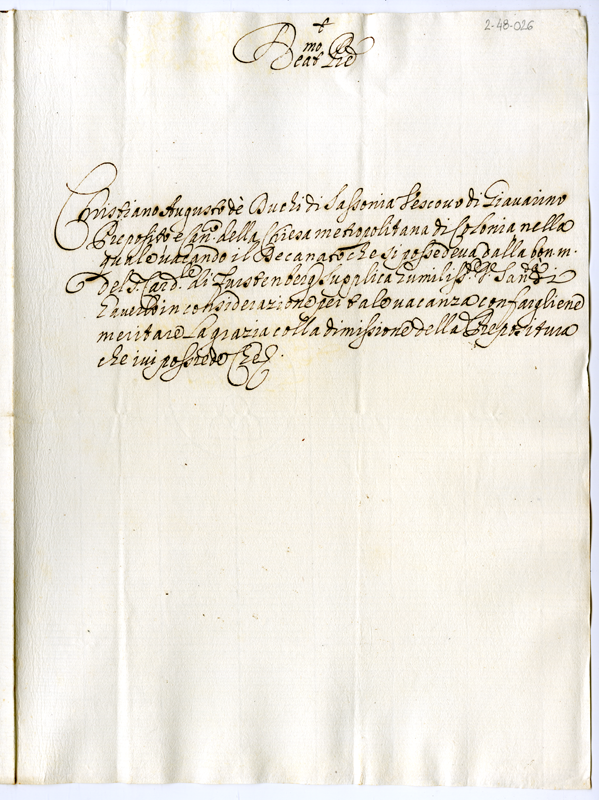 2-48-026
+
Beat.mo Pre
Christiano Augusto dè Duchi di Sassonia Vescovo di Giavarino
Preposito e Can.co della Chiesa metropolitana di Colonia nella
quale vacando il Decanato che si possedeva dalla bon. m.
del S. Card. di Furstenberg supplica humiliss.e V. San.tà di
haverlo in considerazione per tale vacanza con fargliene
meritare la grazia colla dimissione della Prepositura
che ivi possiede Che &.